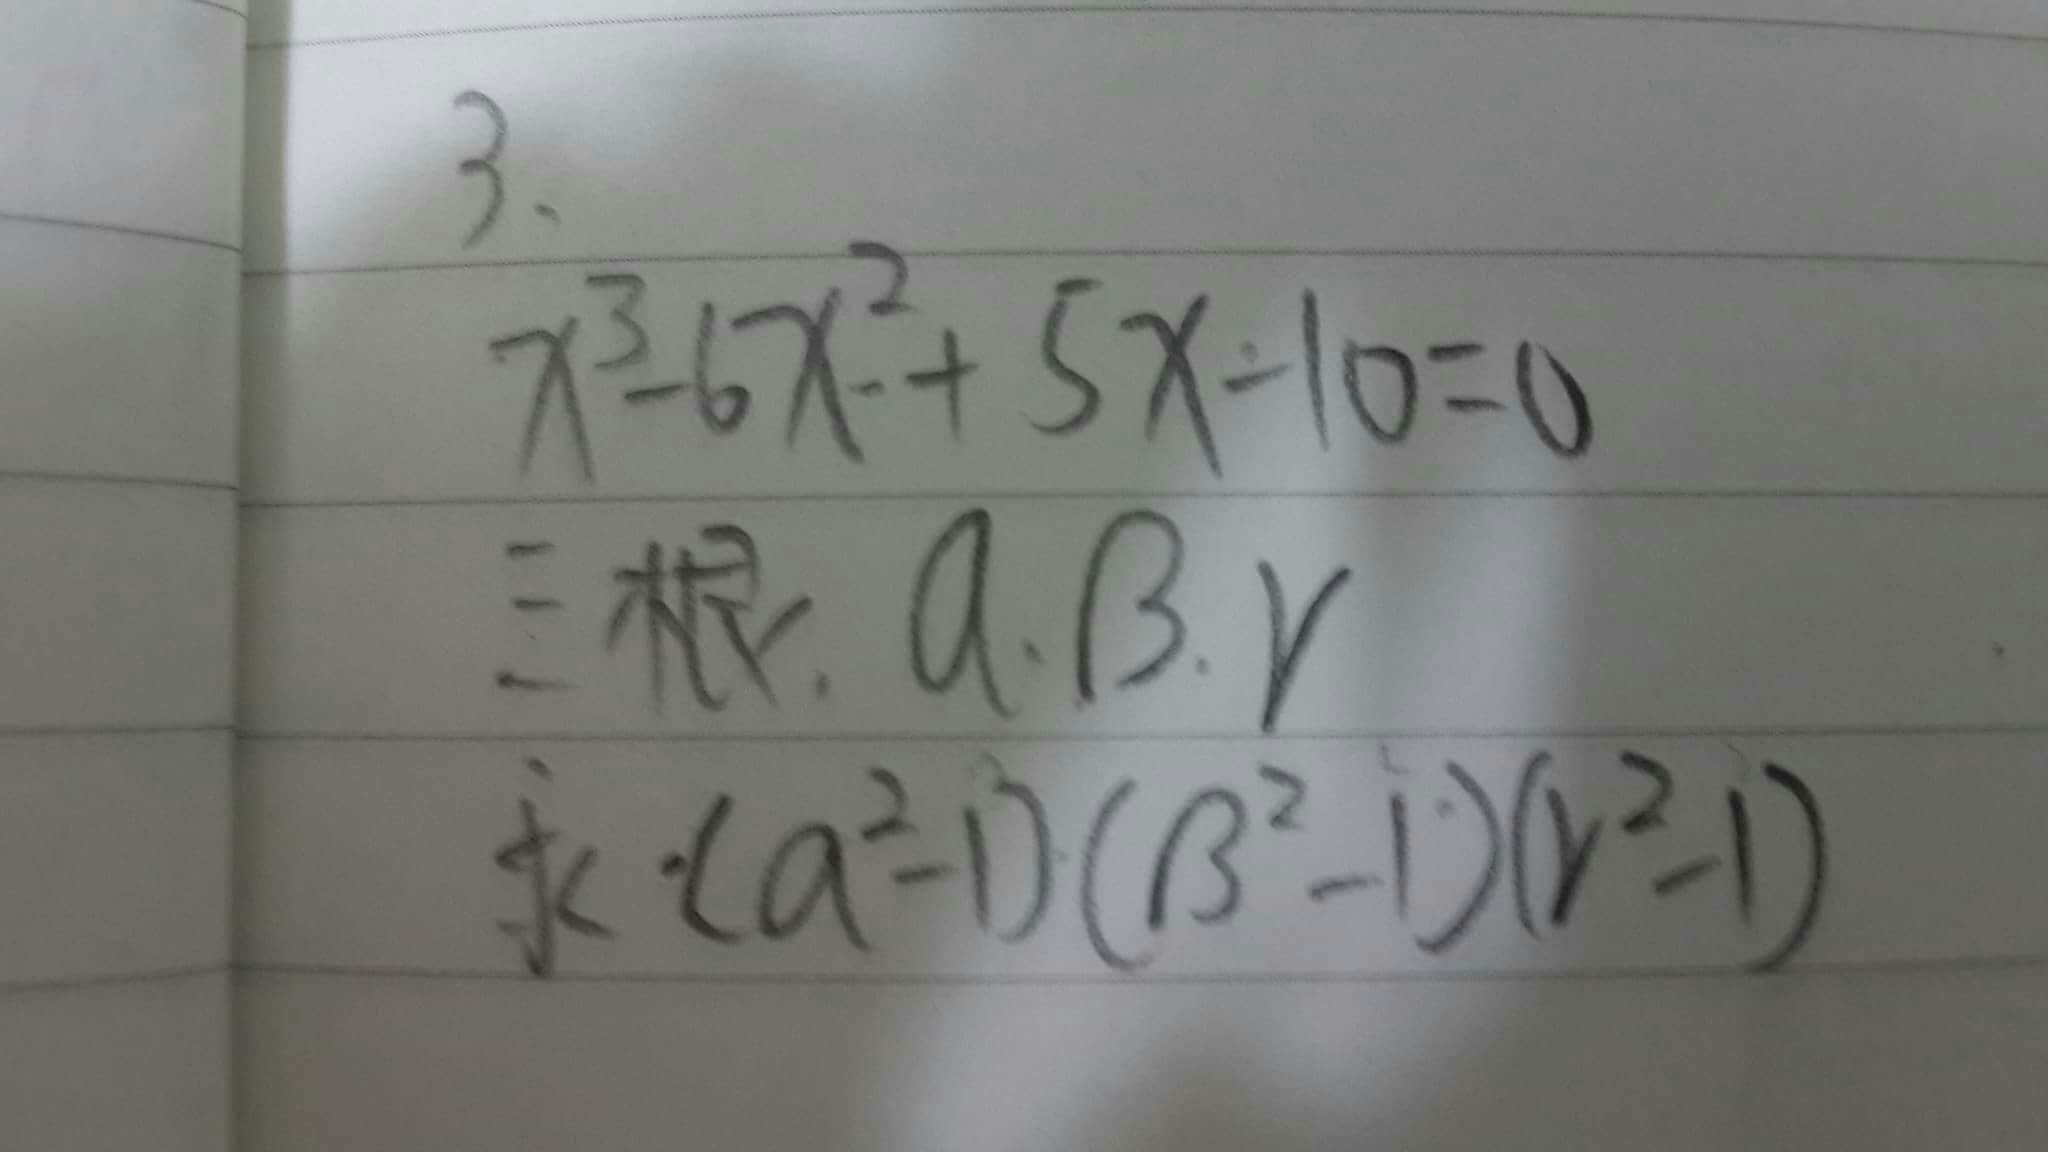 3.
x³-6x²+5x-10=0
三根. α.β.γ
求(α²-1)(β²-1)(γ²-1)